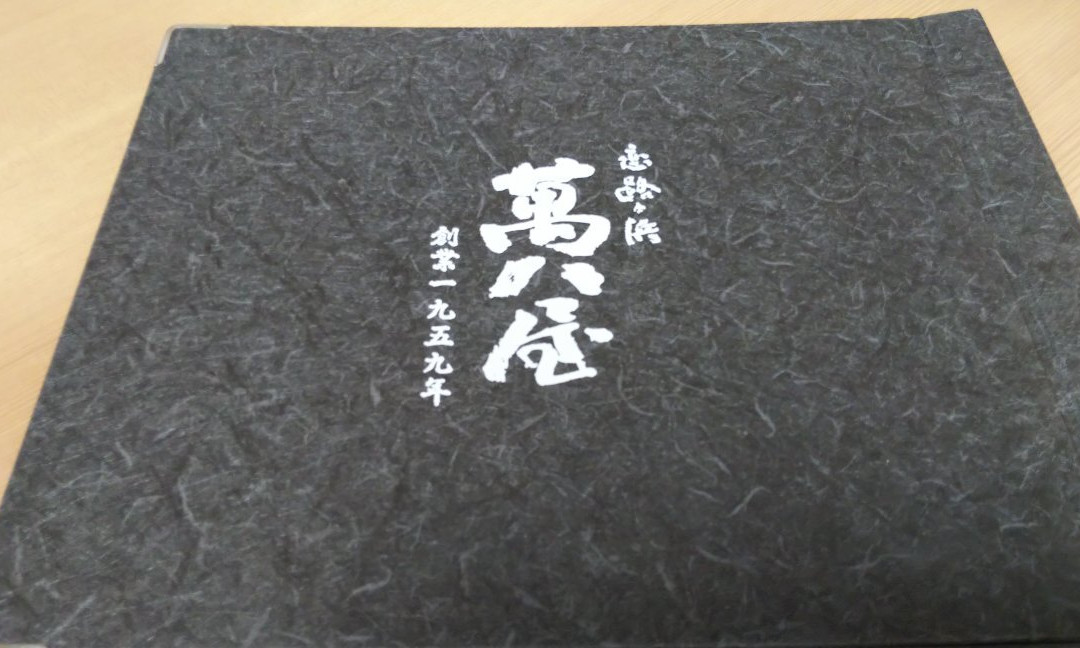 恋路ヶ浜
萬八屋
創業一九五九年